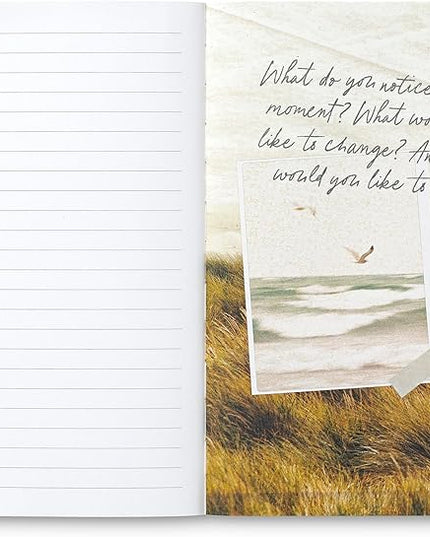 What do you notice
moment? What
like to change?
would you like to